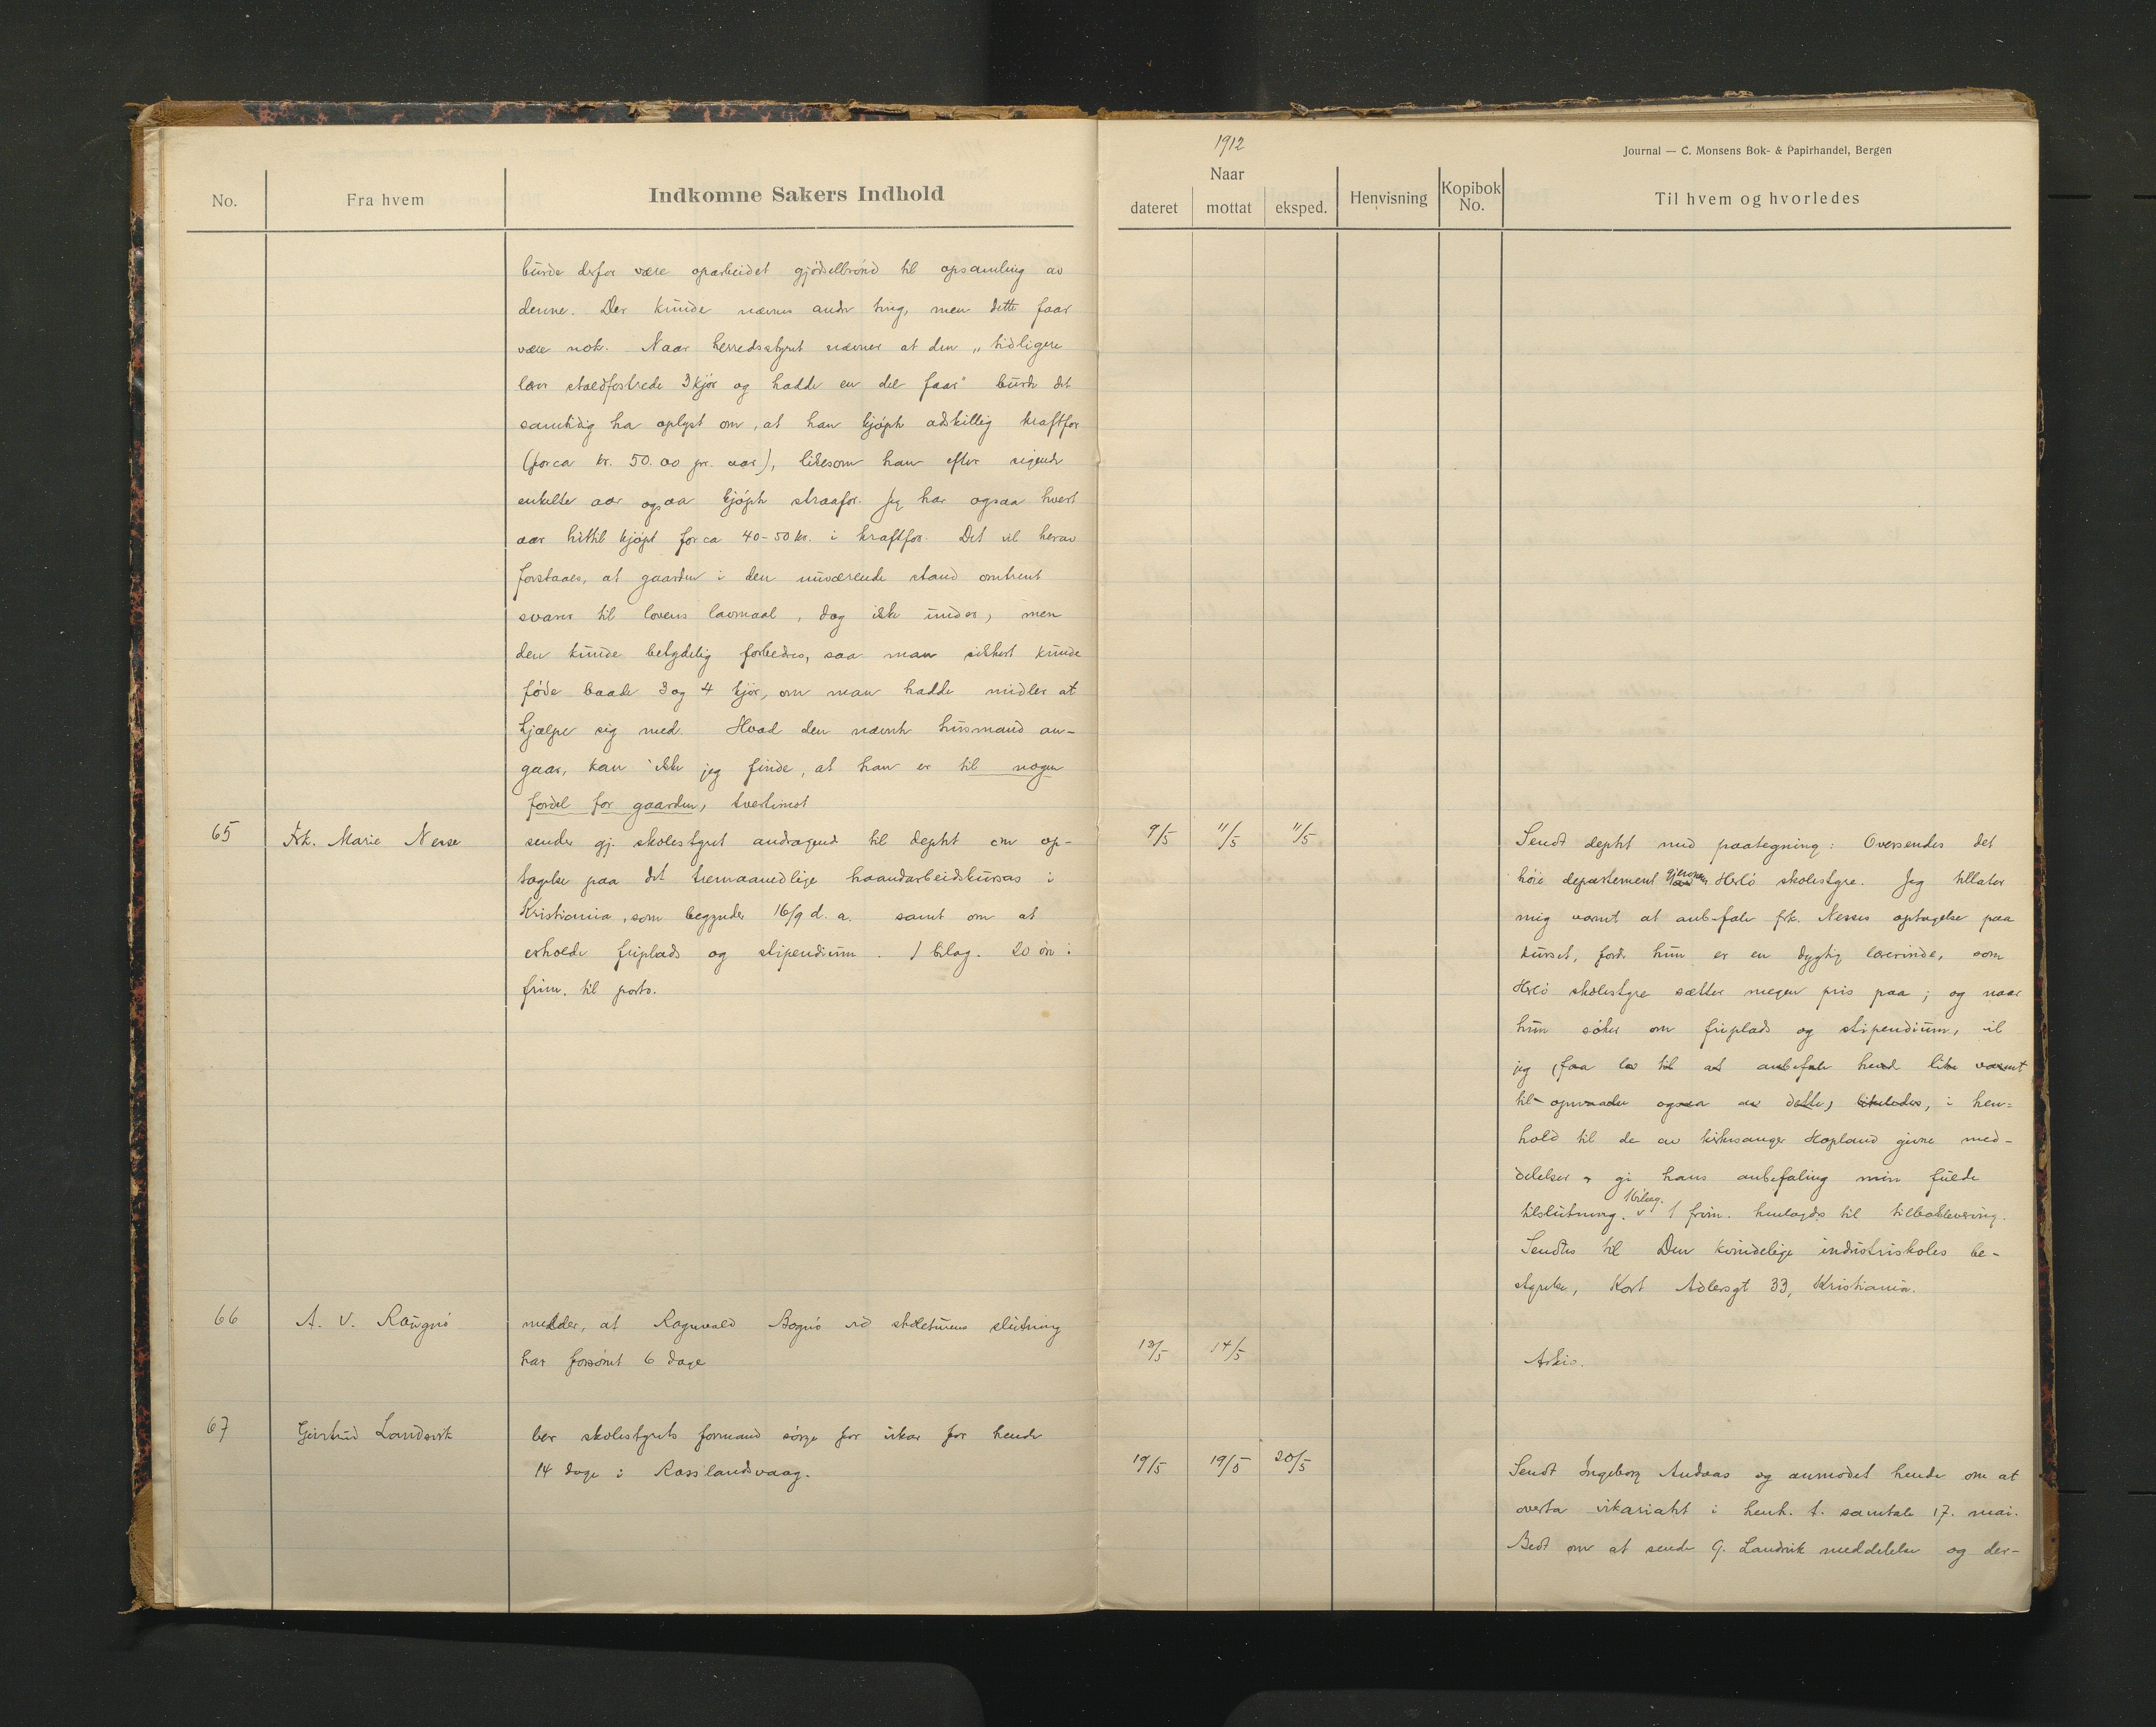 1912
Journal — C. Monsens Bok- & Papirhandel, Bergen
No.
Fra hvem
Indkomne Sakers Indhold
Naar
dateret
mottat
eksped.
Henvisning
Kopibok No.
Til hvem og hvorledes
burde derfor være oparbeidet gjödselbrönd til opsamling av
denne. Der kunde nævnes andre ting, men dette faar
være nok. Naar herredsstyret nævner at den „tidligere
lærer staldfostrede 3 kjör og hadde en del faar" burde det
samtidig ha oplyst om, at han kjöpte adskillig kraftfor
(for ca kr. 50.00 pr. aar), likesom han efter sigende
enkelte aar ogsaa kjöpte straafor. Jeg har ogsaa hvert
aar hittil kjöpt for ca 40-50 kr. i kraftfor. Det vil herav
forstaaes, at gaarden i den nuværende stand omtrent
svarer til lovens lavmaal, dog ikke under, men
den kunde betydelig forbedres, saa man sikkert kunde
föde baade 3 og 4 kjör, om man hadde midler at
hjælpe sig med. Hvad den nævnte husmand an-
gaar, kan ikke jeg finde, at han er til nogen
fordel for gaarden, tvertimot
65
Frk. Marie Nesse
sender gj. skolestyret andragende til deptet om op-
tagelse paa det tremaanedlige haandarbeidskursus i
Kristiania, som begynder 16/9 d. a. samt om at
erholde friplads og stipendium. 1 bilag. 20 öre i
frim. til porto.
9/5
11/5
11/5
Sendt deptet med paategning: Oversendes det
höie departement gjennem Herlö skolestyre. Jeg tillater
mig varmt at anbefale frk. Nesses optagelse paa
kurset, fordi hun er en dygtig lærerinde, som
Herlö skolestyre sætter megen pris paa; og naar
hun söker om friplads og stipendium, vil
jeg, faa lov til at anbefale hende like varmt
til opnaaelse ogsaa av dette, likeledes, i hen=
hold til de av kirkesanger Hopland givne med-
delelser gi hans anbefaling min fulde
tilslutning. 1 bilag. 1 frim. henlagdes til tilbakelevering.
Sendtes til Den kvindelige industriskoles be-
styrelse, Kort Adlersgt 33, Kristiania.
66
A. V. Raugnö
melder, at Ragnvald Bognö ved skoleturens slutning
har forsömt 6 dage
13/5
14/5
Arkiv.
67
Gjertrud Landsvik
ber skolestyrets formand sörge for vikar for hende
14 dage i Rosslandsvaag.
19/5
19/5
20/5
Sendt Ingeborg Andaas og anmodet hende om at
overta vikariatet i henh. t. samtale 17. mai.
Bedt om at sende G. Landsvik meddelelse og der-